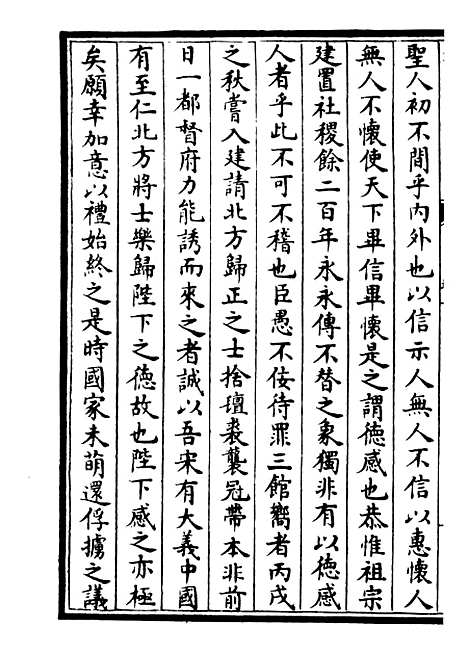 聖人初不間乎内外也以信示人無人不信以惠懷人
無人不懷使天下畢信畢懷是之謂德感也恭惟祖宗
建置社稷餘二百年永永傳不替之象獨非有以德感
人者乎此不可不稽也臣愚不佞待罪三館嚮者丙戌
之秋嘗入建請北方歸正之士捨氊裘襲冠帶本非前
日一都督府力能誘而來之者誠以吾宋有大義中國
有至仁北方將士樂歸陛下之德故也陛下感之亦極
矣願幸加意以禮始終之是時國家未萌還俘擄之議